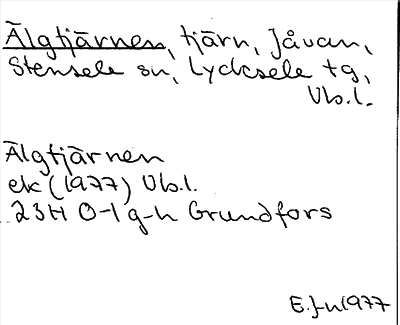 Älgtjärnen, tjärn, Jåvan,
Stensele sn, Lycksele tg,
Vb.l.
Älgtjärnen
ek (1977) Vb.l.
23H 0-1 g-h Grundfors
E.J-n 1977